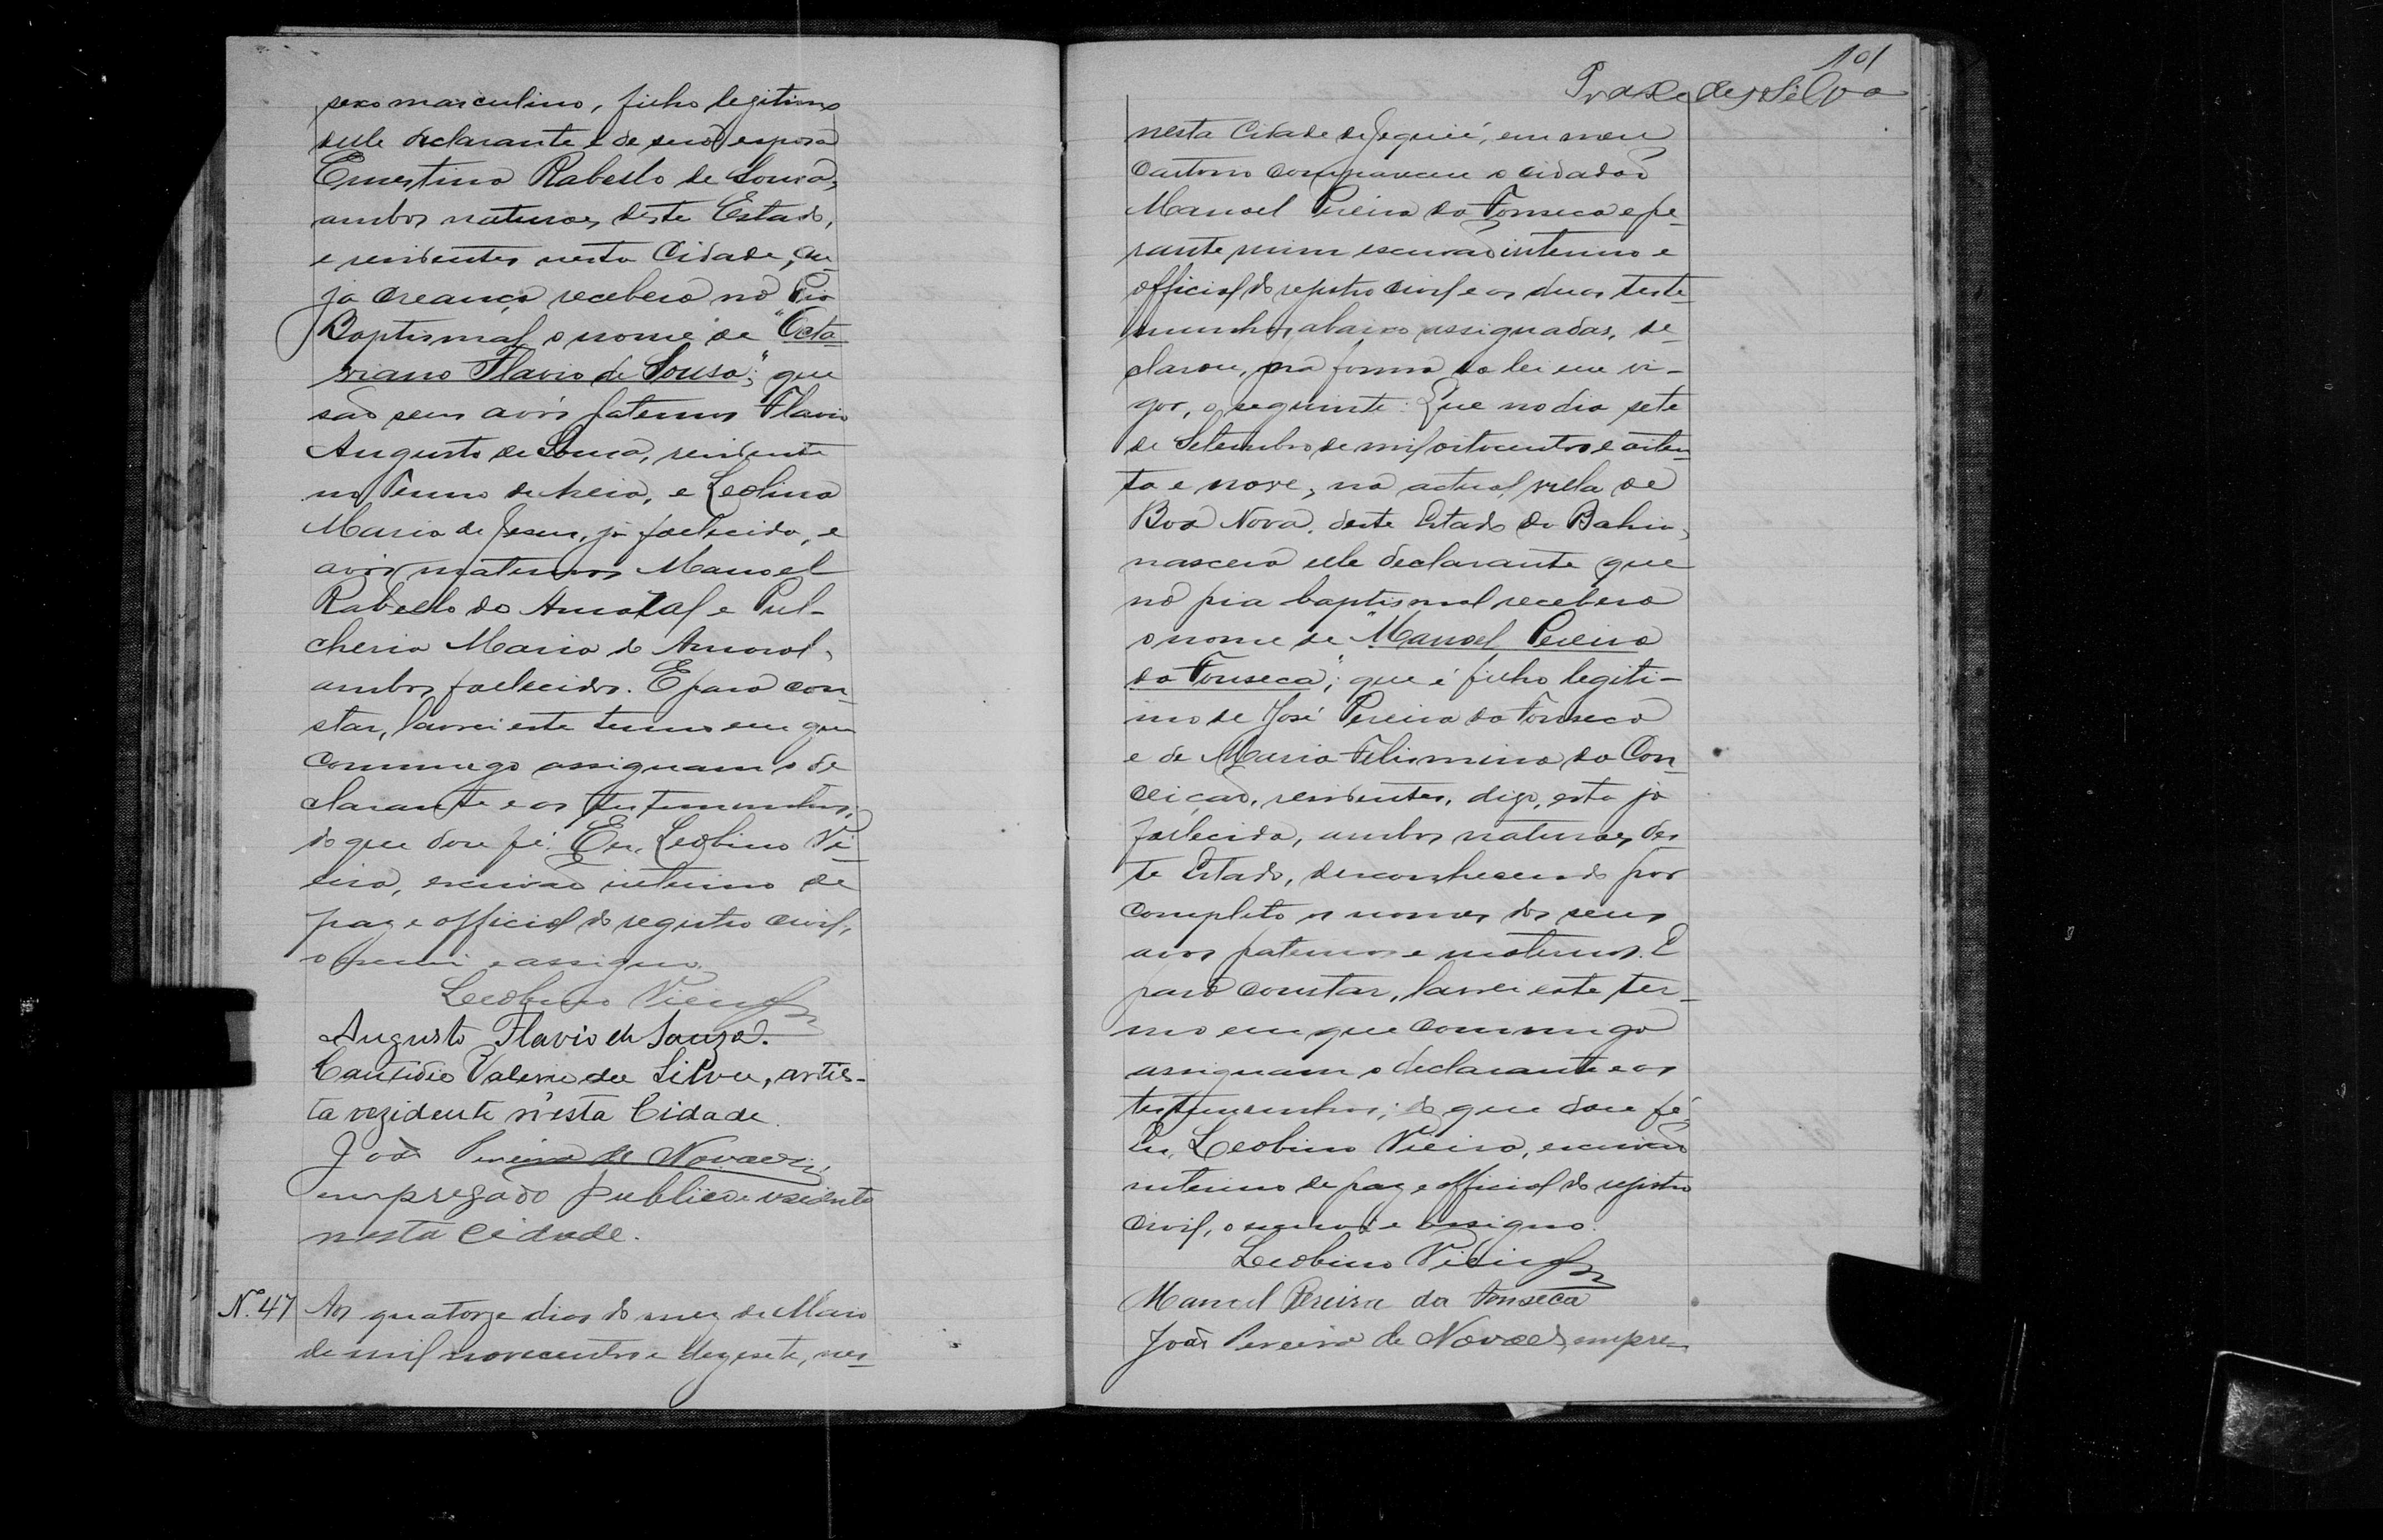 sexo masculino, filho legitimo
delle declarante e de sua esposa
Ernestina Rabello de Souza,
ambos naturaes deste Estado,
e residentes nesta Cidade, cu-
ja creança receberá na Pia
Baptismal o nome de "Octa-
viano Flavio de Sousa"; que
são seus avós paternos Flavio
Augusto de Souza, residente
no Termo de Areia, e Leolina
Maria de Jesus, já fallecida, e
avós maternos Manoel
Rabello do Amaral e Pul-
cheria Maria do Amaral,
ambos fallecidos. E para con-
star, lavrei este termo em que
commigo assignam o de-
clarante e as testemunhas;
do que dou fé. Eu, Leobino Vi-
eira, escrivão interino de
paz e official do registro civil,
o escrevi e assigno.
Leobino Vieira
Augusto Flavio de Souza.
Cantidio Valerio da Silva, artis-
ta rezidente n'esta Cidade.
João Pereira de Novaes,
empregado publico residente
nesta Cidade.
Nº 47 Aos quatorze dias do mez de Maio
de mil novecentos e dezesete, nes-
101
Prado da Silva
nesta Cidade de Jequié, em meu
Cartorio compareceu o cidadão
Manoel Pereira da Fonseca e pe-
rante mim escrivão interino e
official do registro civil e as duas teste-
munhas abaixo assignadas, de-
clarou, na forma da lei em vi-
gor, o seguinte: Que no dia sete
de Setembro de mil oitocentos e oiten-
ta e nove, na actual villa de
Boa Nova, deste Estado da Bahia,
nascera elle declarante que
na pia baptismal recebera
o nome de "Manoel Pereira
da Fonseca"; que é filho legiti-
mo de José Pereira da Fonseca
e de Maria Felismina da Con-
ceição, residentes, digo, esta já
fallecida, ambos naturaes des-
te Estado, desconhecendo por
completo os nomes dos seus
avos paternos e maternos. E
para constar, lavrei este ter-
mo em que commigo
assignam o declarante e as
testemunhas; do que dou fé,
Eu, Leobino Vieira, escrivão
interino de paz e official do registro
civil, o escrevi e assigno.
Leobino Vieira
Manoel Pereira da Fonseca
João Pereira de Novaes, empre-